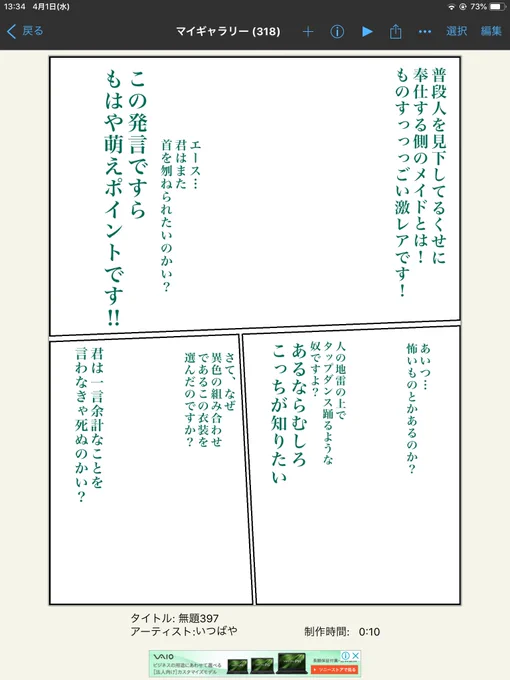 13:34 4月1日(水)
73%
戻る
マイギャラリー (318)
選択
編集
普段人を見下してるくせに
奉仕する側のメイドとは！
ものすっっっごい激レアです！
エース…
君はまた
首を刎ねられたいのかい？
この発言ですら
もはや萌えポイントです!!
あいつ…
怖いものとかあるのか？
人の地雷の上で
タップダンス踊るような
奴ですよ？
あるならむしろ
こっちが知りたい
さて、なぜ
異色の組み合わせ
であるこの衣装を
選んだのですか？
君は一言余計なことを
言わなきゃ死ぬのかい？
タイトル: 無題397
アーティスト:いつばや
制作時間: 0:10
VAIO
ビジネスの用途にあわせて選べる
[法人向け]カスタマイズモデル